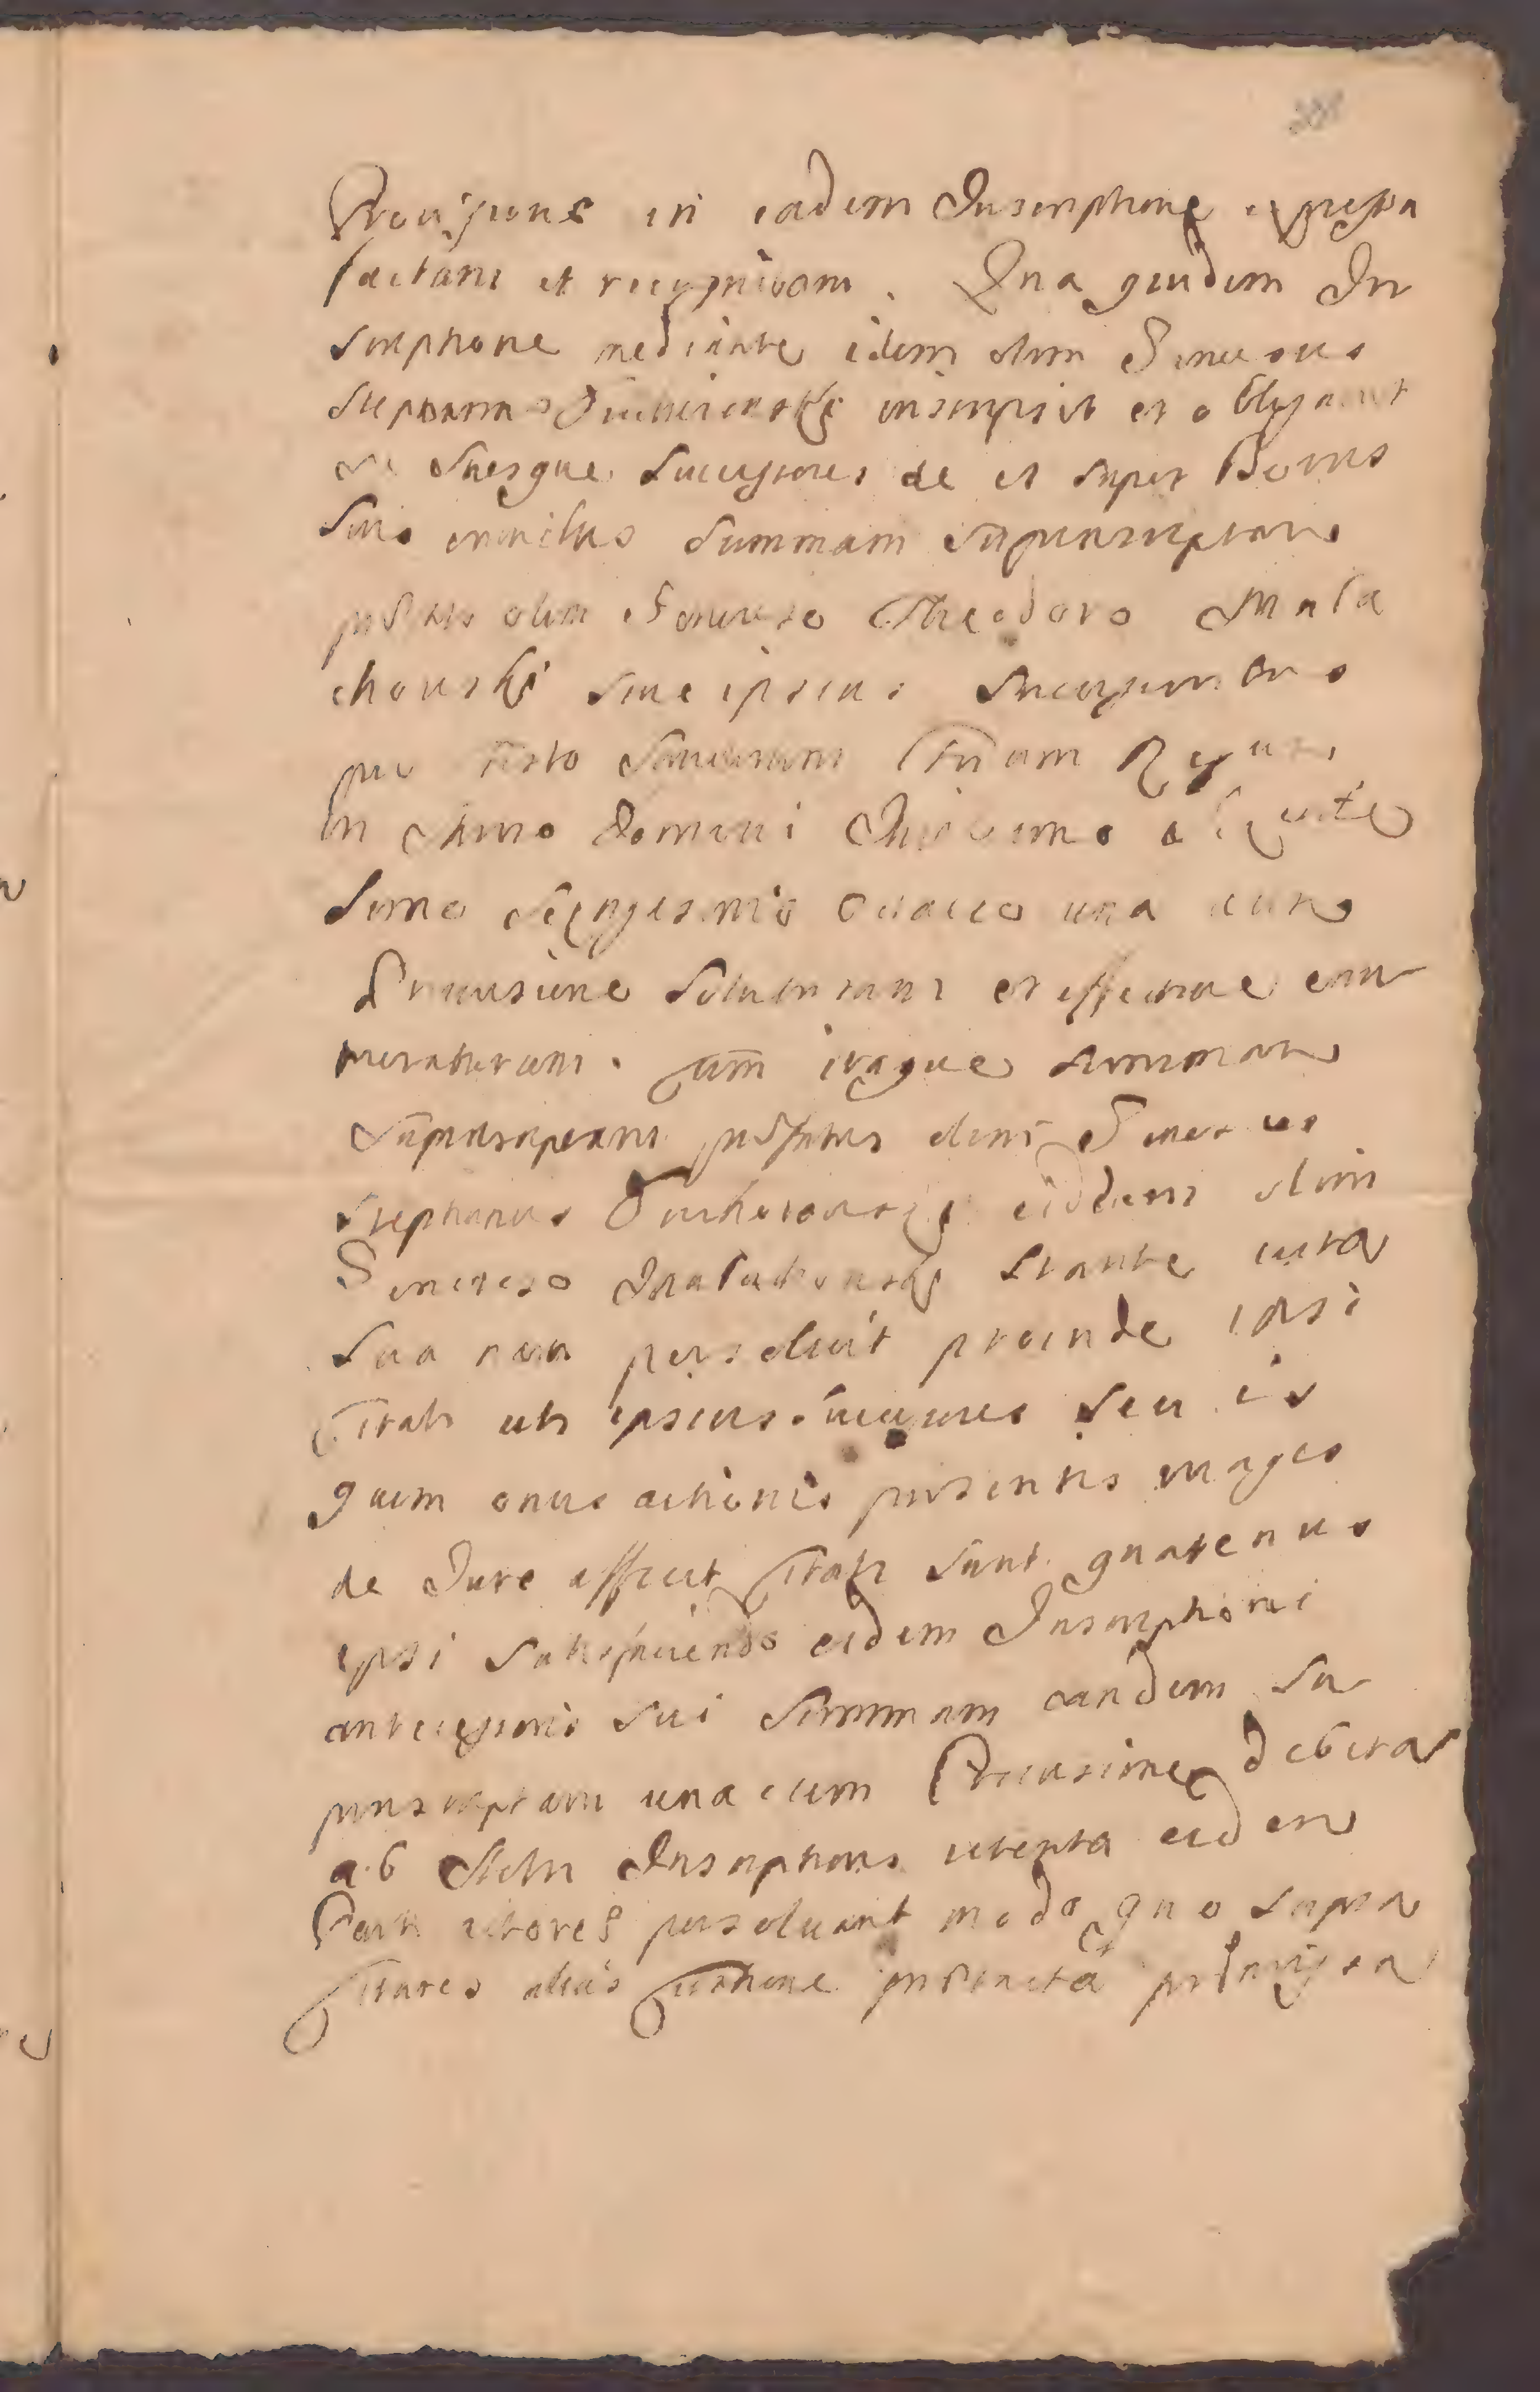 Provisione in eadem Inscriptione expressa
factam et recognitam. Qua quidem In
scriptione mediante idem olim Generosus
Stephanus inscripsit et obligavit
se suosque Successores de et super Bonis
Suis omnibus Summam supranscriptam
olim Generoso Theodoro Mala
chowski sive ipsius Successoribus
pro festo Sanctorum Trium Regum
in Anno Domini Millesimo
simo Sexagesimo Octavo una cum
Provisione Soluturum et effective enu
meraturum. Cum itaque summam
supranscriptam pdfatus olim Generosus
Stephanus eidem olim
Generoso Malachowski stante vita
sua non persolvit proinde ipsi
Citati uti ipsius successores seu is
quem onus actionis praesentis magis
de Jure afficit Citati sunt quatenus
ipsi satisfaciendo eidem Inscriptioni
antecessoris sui Summam eandem su
pranscriptam una cum Provisione debita
ab Actu Inscriptionis retenta eidem
Parti actoreae persolvant modo quo supra
Citatos alias Citatione